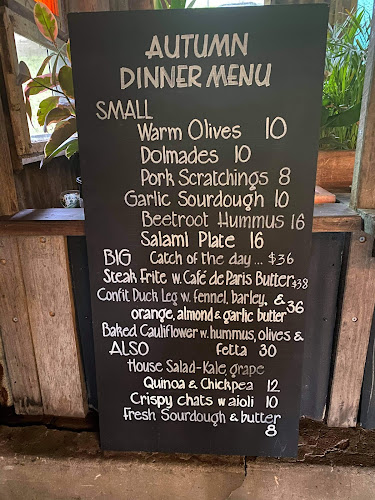 AUTUMN
DINNER MENU
SMALL
Warm Olives 10
Dolmades 10
Pork Scratchings 8
Garlic Sourdough 10
Beetroot Hummus 16
Salami Plate 16
BIG Catch of the day ... $36
Steak Frite w. Café de Paris Butter $38
Confit Duck Leg w. fennel, barley, &
orange, almond & garlic butter 36
Baked Cauliflower w. hummus, olives &
ALSO fetta 30
House Salad-Kale, grape
Quinoa & Chickpea 12
Crispy chats w aioli 10
Fresh Sourdough & butter
8